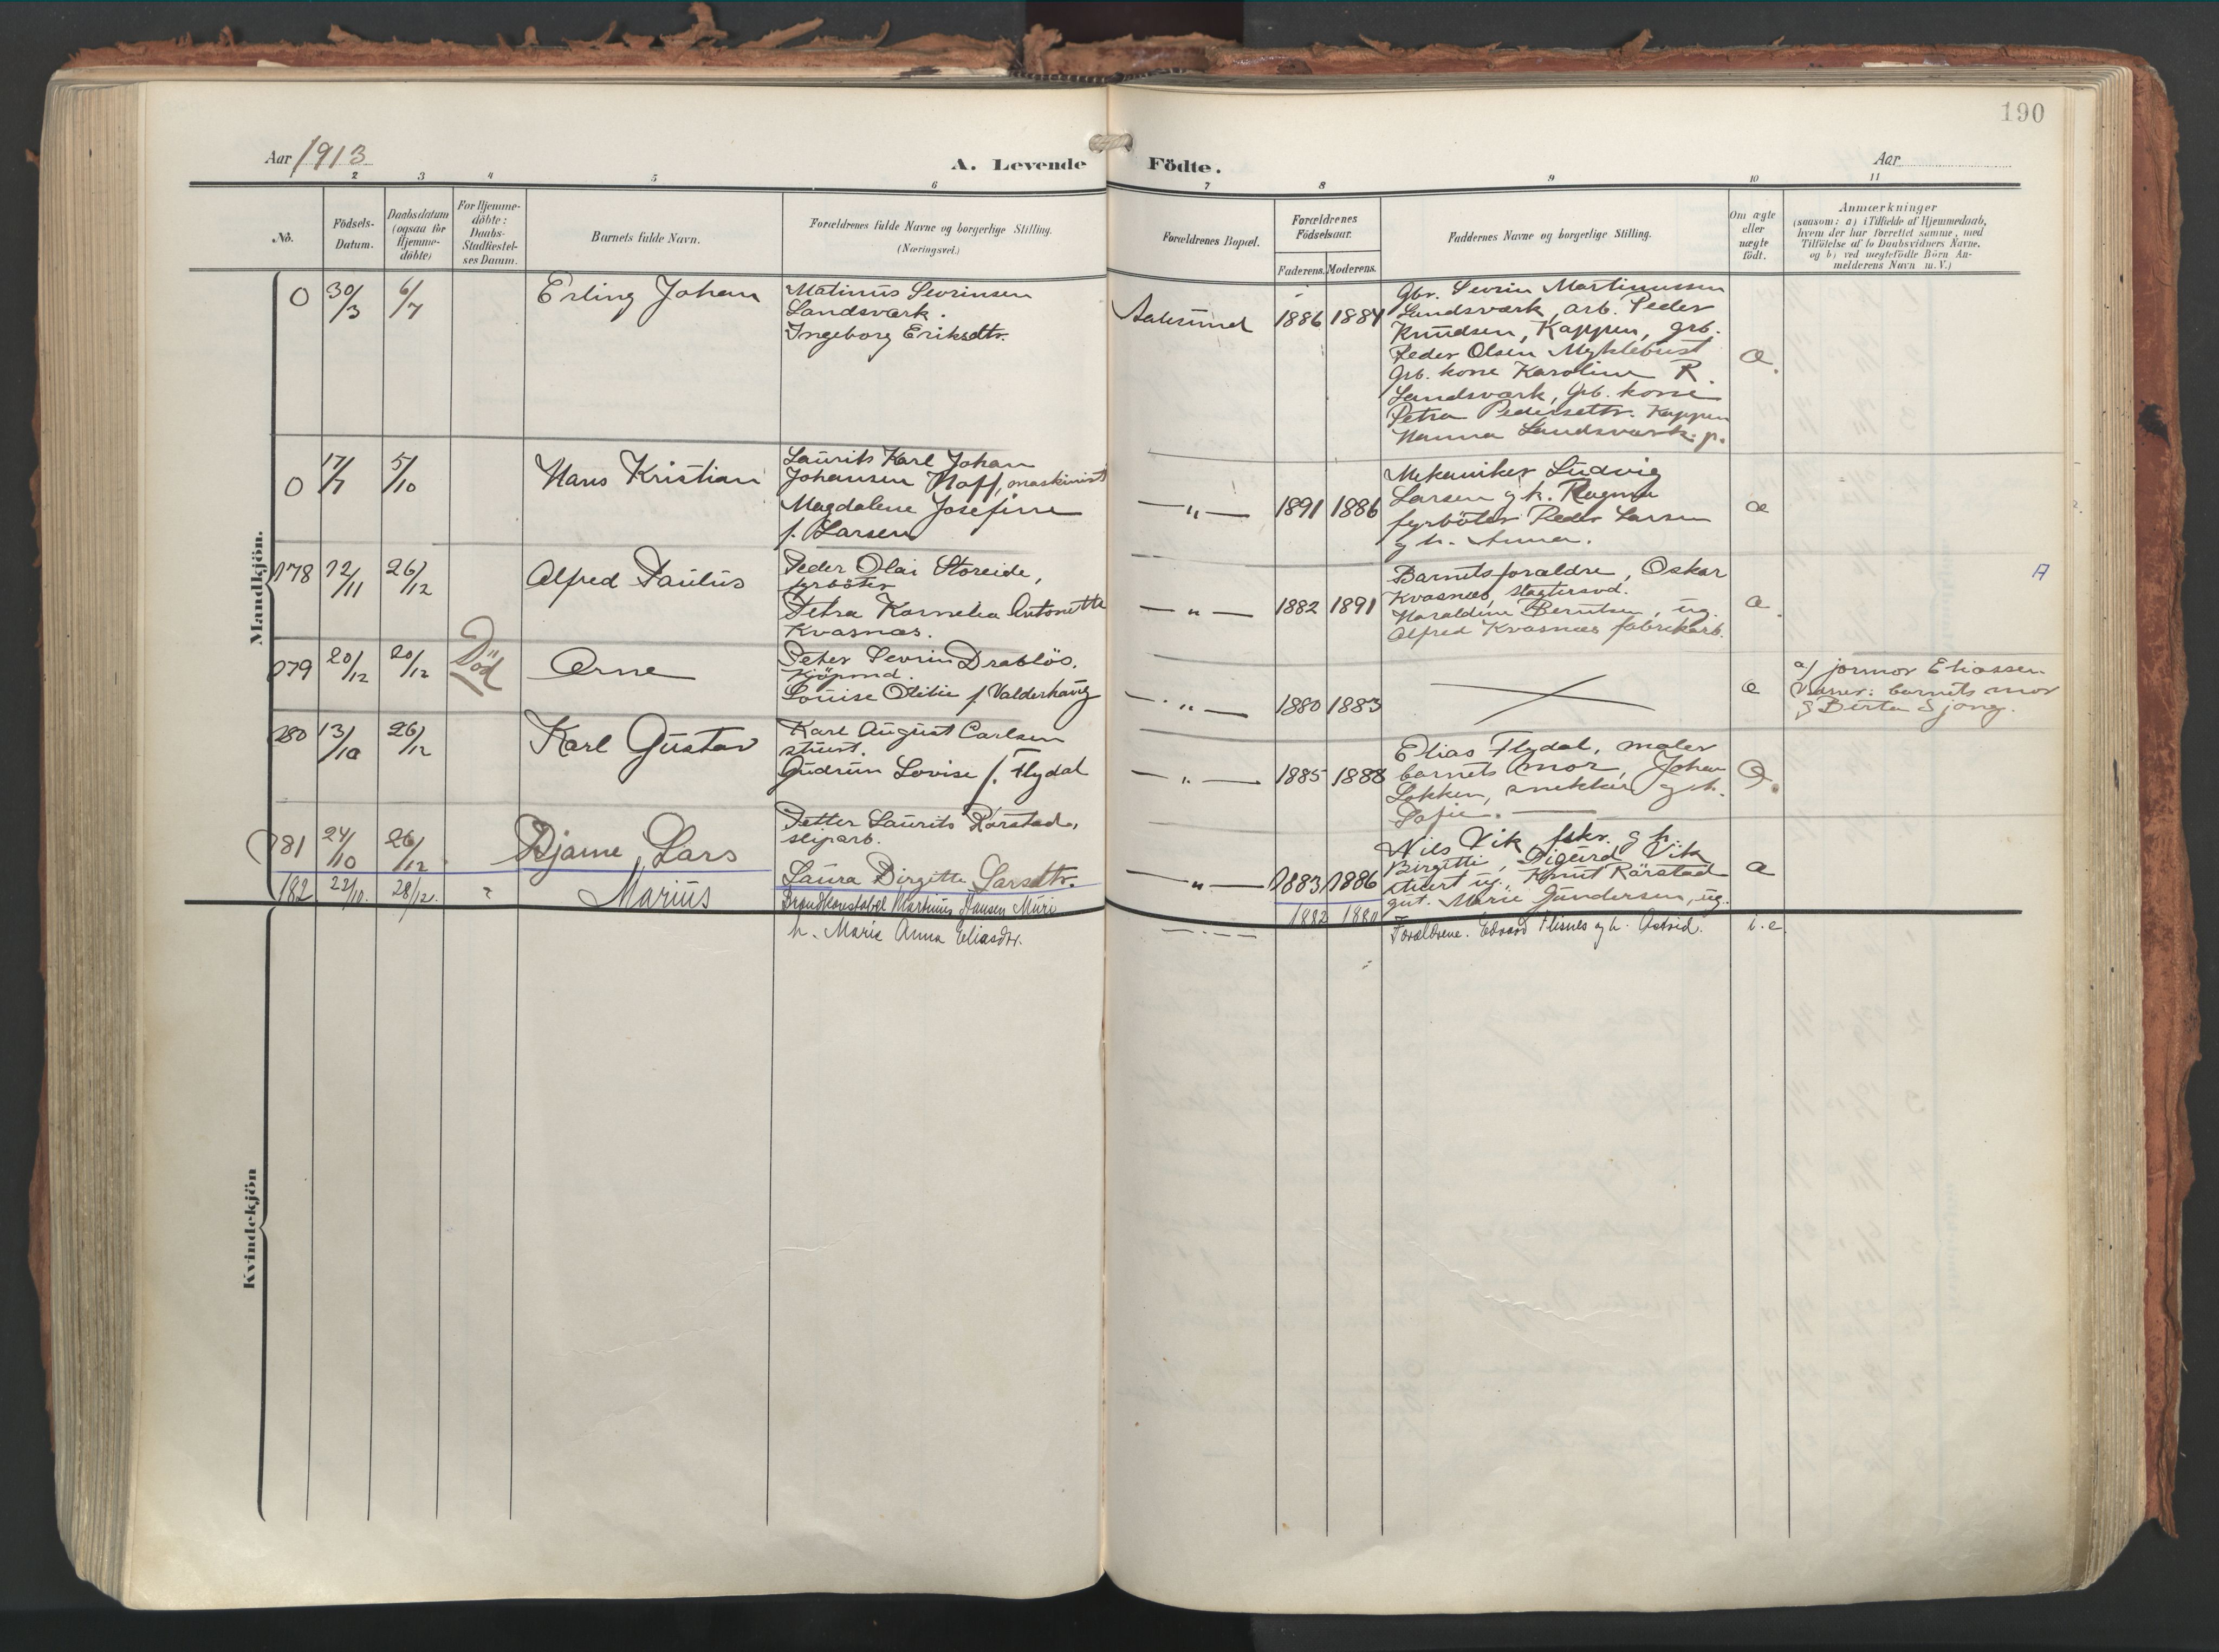 190
Aar 1913
A. Levende Födte.
Aar
1 2 3 4 5 6 7 8 9 10 11
No.
Födsels-
Datum.
Daabsdatum
(ogsaa for
Hjemme-
döbte)
For Hjemme-
döbte:
Daabs-
Stadfæstel-
ses Datum.
Barnets fulde Navn.
Forældrenes fulde Navne og borgerlige Stilling.
(Næringsvei.)
Forældrenes Bopæl.
Forældrenes
Födselsaar.
Faderens. Moderens.
Faddernes Navne og borgerlige Stilling.
Om ægte
eller
uægte
født.
Anmærkninger
(saasom: a) i Tilfælde af Hjemmedaab,
hvem der har forrettet samme, med
Tilföielse af to Daabsvidners Navne,
og b) ved uægtefödte Börn An-
melderens Navn m. V.)
Mandkjön.
0 30/3 6/7 Erling Johan
Matinus Sevrinsen
Landsværk.
Ingeborg Eriksdtr.
Aalesund 1886 1884
Gbr. Sevrin Martinussen
Landsværk, arb. Peder
Knudsen, Kappen, grb.
Peder Olsen Myklebust
Grb. kone Karoline R.
Landsværk, Grb. kone
Petra Pedersdtr. Kappen
Hanna Landsværk. p.
æ.
0 17/7 5/10 Hans Kristian
Laurits Karl Johan
Johansen Hoff, maskinist
Magdalene Josefine
f. Larsen
— " — 1891 1886
Mekaniker Ludvig
Larsen g h. Ragna
fyrböter Peder Larsen
g h. Anna.
æ
178 12/11 26/12 Alfred Paulus
Peder Olai Storeide,
fyrböter
Petra Kornelia Antonette
Kvasnæs.
— " — 1882 1891
Barnets forældre, Oskar
Kvasnæs, slagtersvd.
Haraldine Berntsen, ug.
Alfred Kvasnæs fabrikarb.
æ.
A
179 20/12 20/12 Död Arne
Peter Sevrin Drablös,
Kjöpmd.
Louise Otilie f. Valderhaug
— " — 1880 1883
æ
a/ jormor Eliassen
Vidner: barnets mor
g Berta Sjong.
180 13/10 26/12 Karl Gustav
Karl August Carlsen
stuert.
Gudrun Lovise f. Flydal
— " — 1885 1888
Elias Flydal, maler
barnets mor, Johan
Løkken, snekker g h.
Sofie.
æ.
181 24/10 26/12 Bjarne Lars
Petter Laurits Rørstad,
sliparb.
Laura Birgitte Larsdtr.
— " — 1883 1886
Nils Vik, fskr. g h.
Birgitte, Sigurd Vik
stuert ug. Knut Rørstad
gut. Marie Gundersen, ug.
æ
182 22/10. 28/12. " Marius
Brandkonstabel Martinus Hansen Muri
h. Marie Anna Eliasdtr.
— " — 1882 1880
Forældrene. Edvard Flisnes og h. Astrid.
i. e.
Kvindekjön